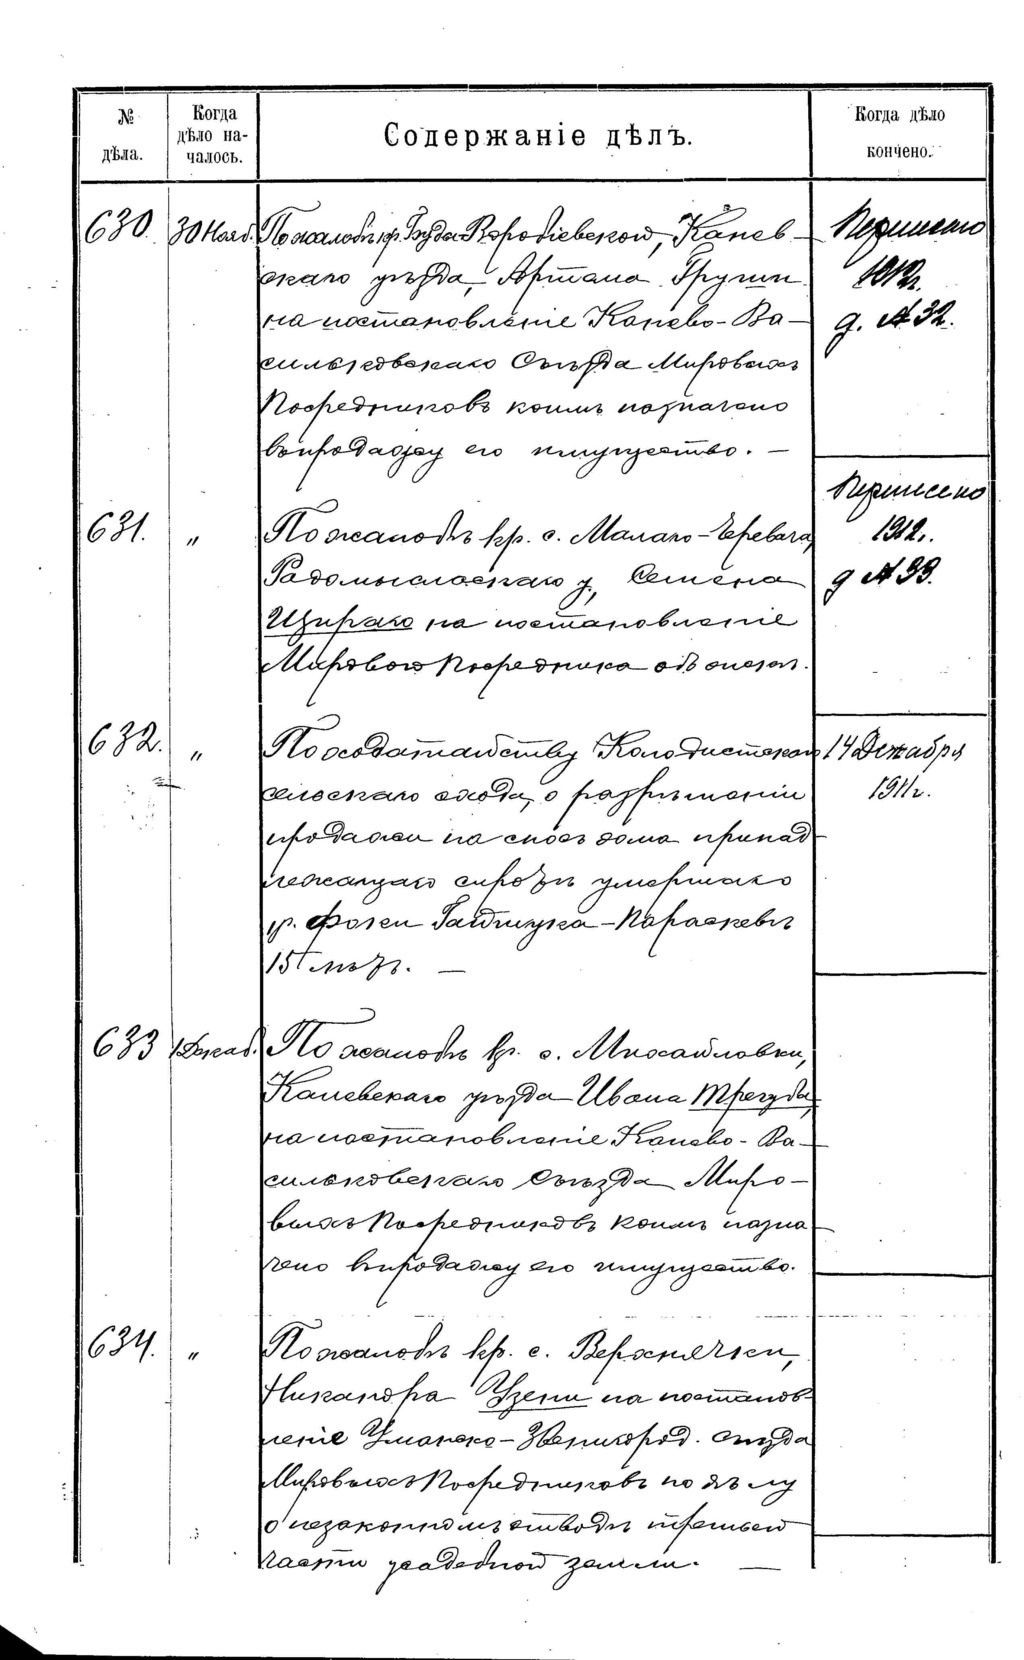 № дѣла.
Когда дѣло началось.
Содержаніе дѣлъ.
Когда дѣло кончено.
630. 30 Нояб. По жалобѣ кр. Буда-Воробіевской, Канев-
скаго уѣзда, Артама Групи
на постановленіе Канево-Ва-
сильковскаго Съѣзда Мировыхъ
Посредниковъ коимъ назначено
въ продажу его имущество. —
Перенесено
1912г.
д. № 32.
631. " По жалобѣ кр. с. Малаго-Черевача,
Радомысльскаго у., Семена
Щираго на постановленіе
Мирового Посредника объ опект.
Перенесено
1912.
д № 33.
632. " По ходатайству Колодистскаго
сельскаго схода, о разрѣшеніи
продажи на сносъ дома принад
лежащаго сиротѣ умершаго
кр. Фоки Гайдичука - Параскевѣ
15 лѣтъ. —
14 Декабря
1911г.
633 1 Декаб. По жалобѣ кр. с. Михайловки,
Каневскаго уѣзда Ивана Трегуба,
на постановленіе Канево-Ва-
сильковскаго Съѣзда Миро-
выхъ Посредниковъ коимъ назна
чено въ продажу его имущество.
634. " По жалобѣ кр. с. Верхнячки,
Никандра Узени на постанов-
леніе Уманско-Звенигород. Съѣзда
Мировыхъ Посредниковъ по дѣлу
о незаконномъ отводѣ третьей
части усадебной земли. —